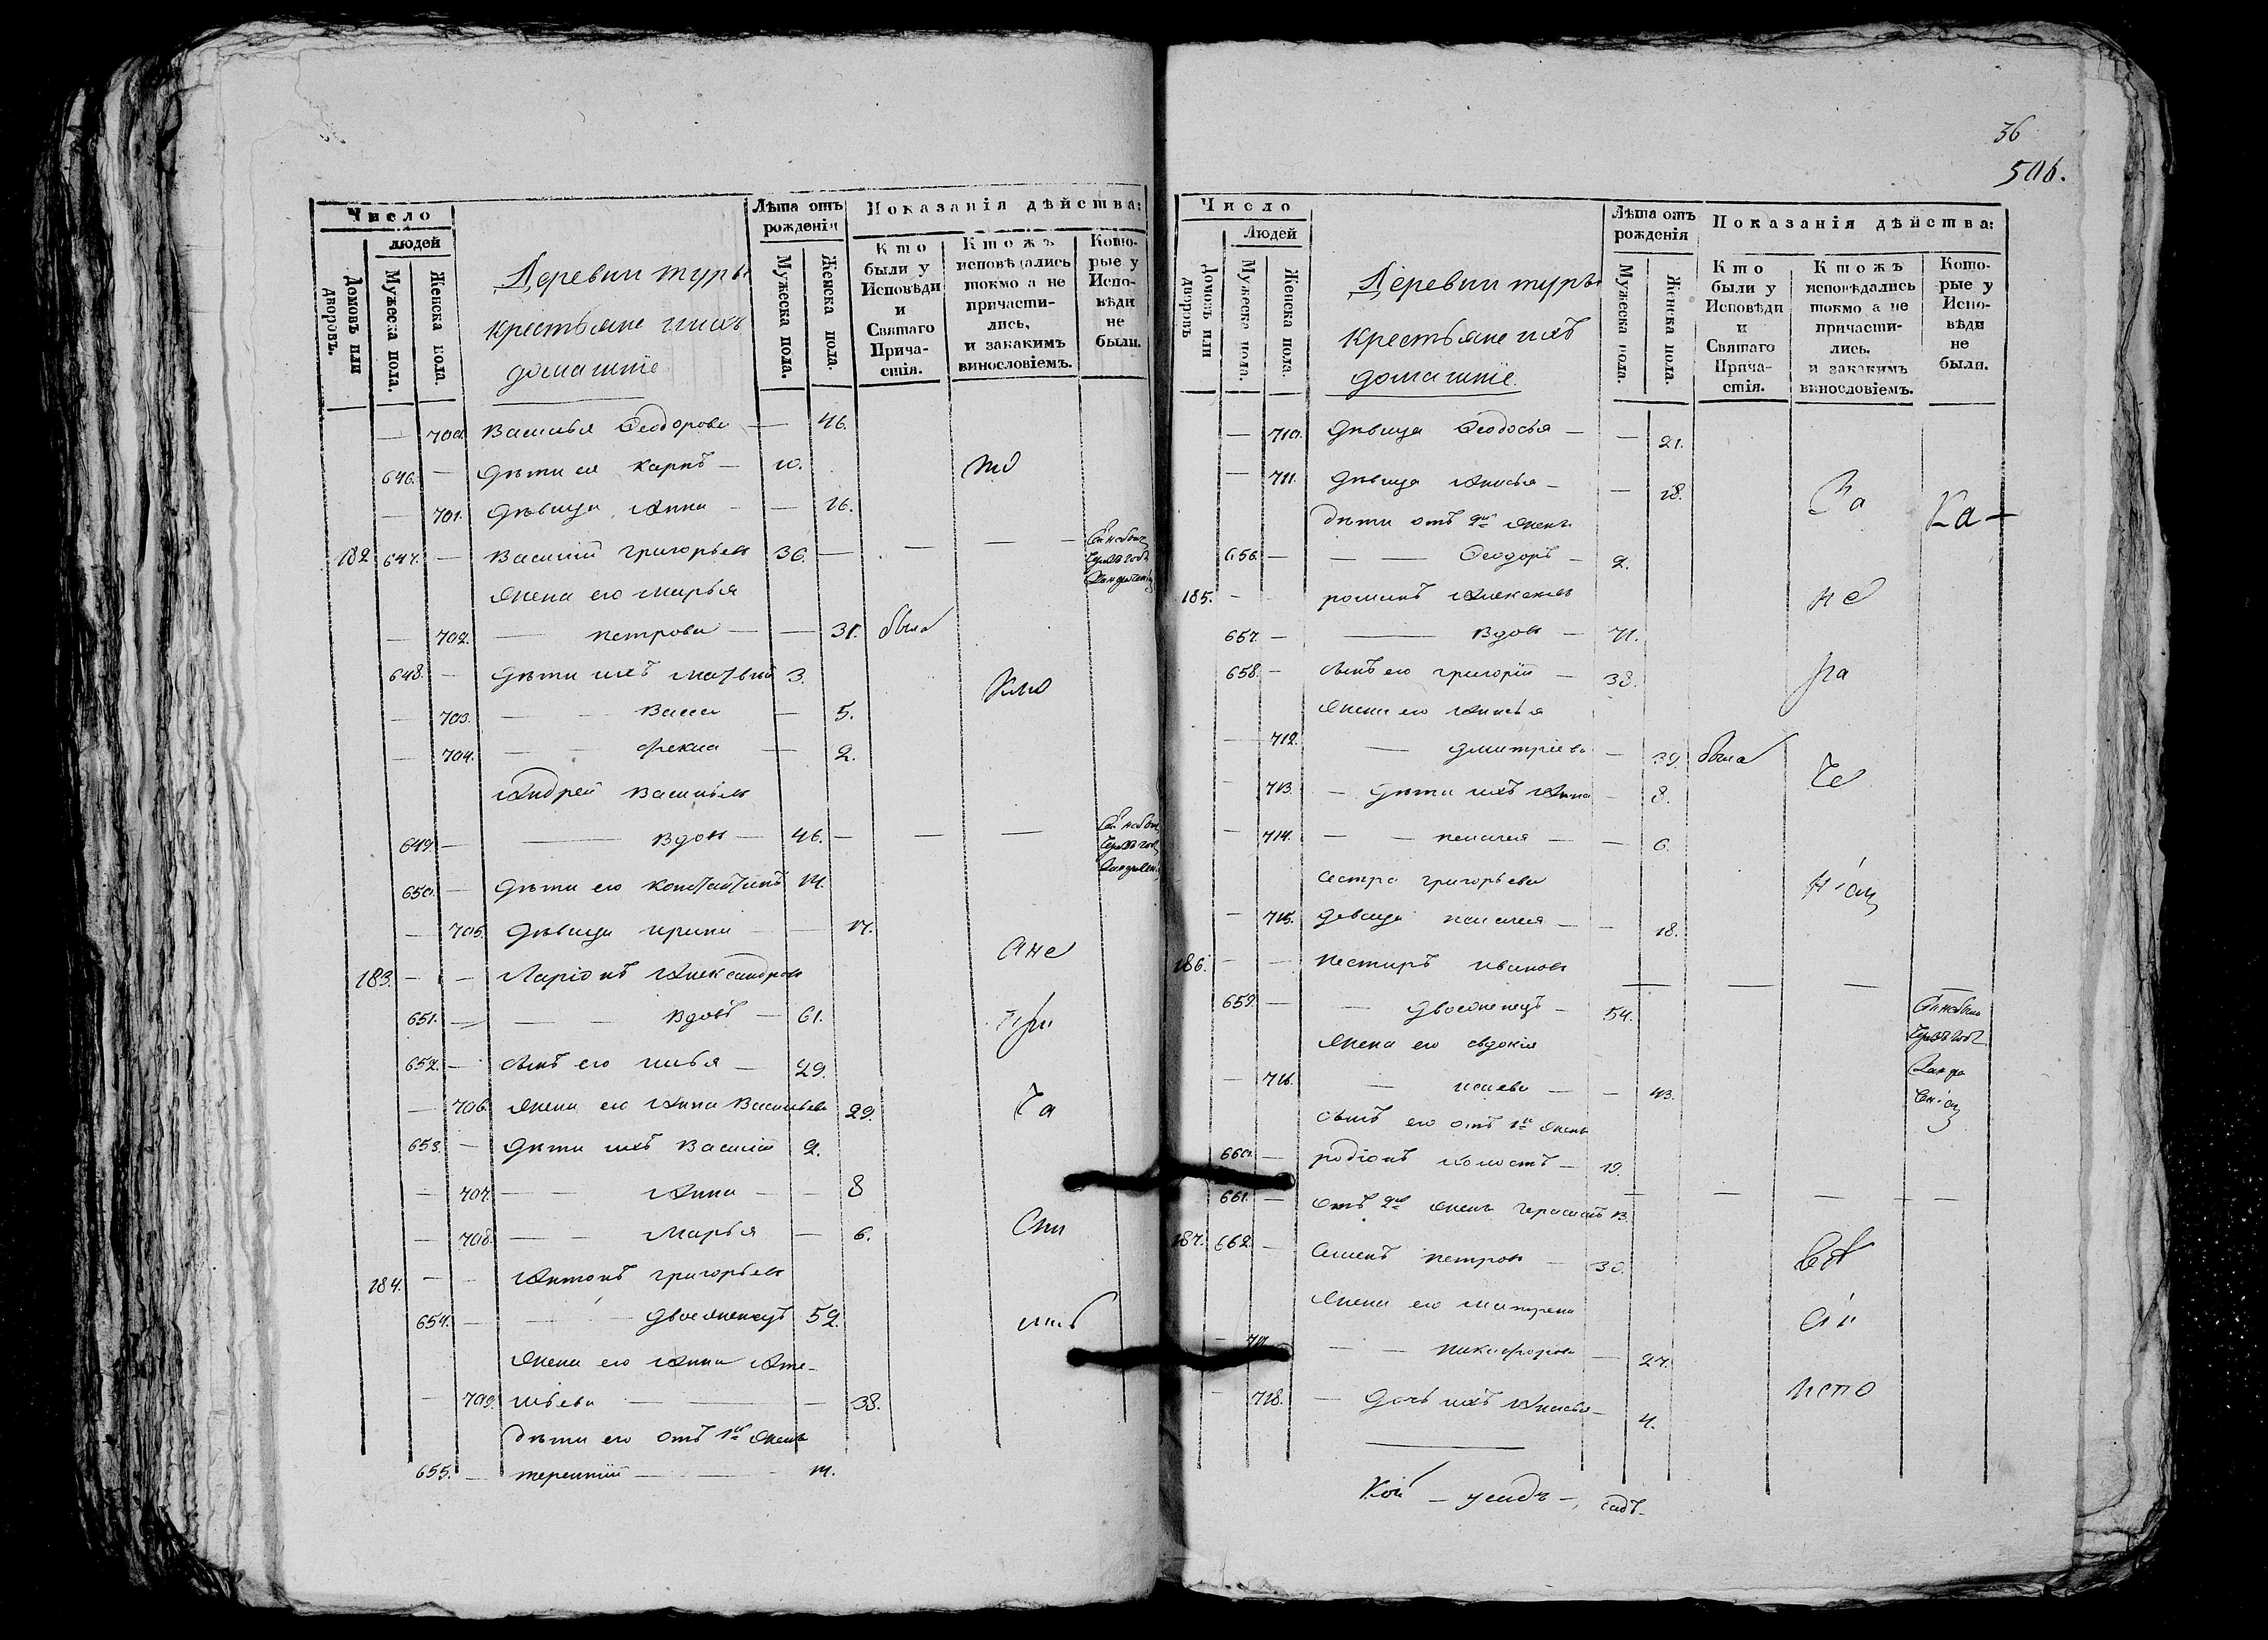 Число
людей
Домовъ или дворовъ.
Мужеска пола.
Женска пола.
Деревни туры
крестьяне ихъ
домашніе
Лѣта отъ рожденія
Мужеска пола.
Женска пола.
Показанія дѣйства:
Кто были у Исповѣди и Святаго Прича-стія.
Ктожъ исповѣдались токмо а не причасти-лись, и закакимъ винословіемъ.
Кото-рые у Испо-вѣди не были.
— 700. Василья Ѳеодорова — — 46.
646. — Дѣти ея Карпъ — 10.
то
— 701. Дѣвица Анна — — 16.
182 647. — Василій Григорьевъ 36. — — — —
Жена его Марья
— 702. — Петрова — — 31. была
648. — Дѣти ихъ Матвѣй 3.
кмо
— 703. — — Васса — 5.
— 704. — — Фекла — 2.
Андрей Васильевъ
649. — — Вдовъ — 46. — — —
650. — Дѣти его Константинъ 14.
— 705. Дѣвица Ирина — — 17.
ане
183. — — Ларіонъ Александровъ
651. — — — Вдовъ — 61.
при
652. — Сынъ его Илья — 29.
— 706. Жена его Анна Васильева 29.
ча
653. — Дѣти ихъ Василій 2.
— 707. — — Анна — — 8
— 708. — — Марья — 6.
сти
184. — — Антонъ Григорьевъ
654. — — — Двоеженецъ 52.
лись
Жена его Анна Аме-
— 709. льева — — — 38.
дѣти его отъ 1й жены
655. — терентій — — 14.
36
506.
Число
Людей
Домовъ или дворовъ
Мужеска пола.
Женска пола.
Деревни туры
Крестьяне ихъ
домашніе.
Лѣта отъ рожденія
Мужеска пола.
Женска пола.
Показанія дѣйства:
Кто были у Исповѣди и Святаго Прича-стія.
Ктожъ исповѣдались токмо а не причасти-лись. и закакимъ винословіемъ.
Кото-рые у Испо-вѣди не были.
— 710. Дѣвица Ѳеодосья — — 21.
— 711. Дѣвица Анисья — — 18.
За
Ка-
дѣти отъ 2й жены
656. — — — Ѳеодоръ — 2.
185. — романъ Алексѣевъ
не
657. — — Вдовъ — 71.
658. — Сынъ его Григорій — 38.
ра
Жена его Анисья
— 712. — Дмитріева — 39. была
че
— 713. — Дѣти ихъ Анна — 8.
— 714. — — Пелагея — — 6.
Сестра Григорьева
— 715. Девица Пелагея — — 18.
186. — — Нестиръ Ивановъ
659. — — Двоеженецъ — 54.
Жена его Евдокія
— 716. — Исаева — — 43.
Сынъ его отъ 1й жены
660. — родіонъ холостъ — 19.
661. — отъ 2й жены Герасимъ 13.
187. 662. — Семенъ Петровъ — 30.
Жена его Матрена
— — — Никифорова — 27.
— 718. — Дочь ихъ Анисья — 4.
испо